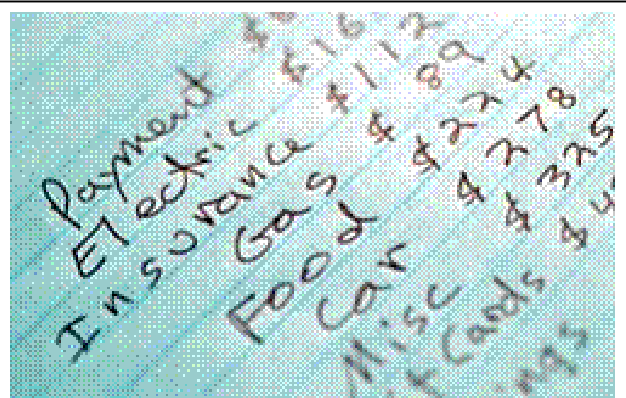 Payment $
Electric $16
Insurance $112
Gas $ 89
Food $224
Car $278
Misc $325
t Cards $4
ings